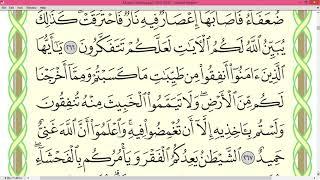 ضُعَفَآءُ فَأَصَابَهَآ إِعْصَارٌ فِيهِ نَارٌ فَٱحْتَرَقَتْ ۗ كَذَٰلِكَ
يُبَيِّنُ ٱللَّهُ لَكُمُ ٱلْءَايَٰتِ لَعَلَّكُمْ تَتَفَكَّرُونَ ٢٦٦ يَٰٓأَيُّهَا
ٱلَّذِينَ ءَامَنُوٓا۟ أَنفِقُوا۟ مِن طَيِّبَٰتِ مَا كَسَبْتُمْ وَمِمَّآ أَخْرَجْنَا
لَكُم مِّنَ ٱلْأَرْضِ ۖ وَلَا تَيَمَّمُوا۟ ٱلْخَبِيثَ مِنْهُ تُنفِقُونَ
وَلَسْتُم بِـَٔاخِذِيهِ إِلَّآ أَن تُغْمِضُوا۟ فِيهِ ۚ وَٱعْلَمُوٓا۟ أَنَّ ٱللَّهَ غَنِىٌّ
حَمِيدٌ ٢٦٧ ٱلشَّيْطَٰنُ يَعِدُكُمُ ٱلْفَقْرَ وَيَأْمُرُكُم بِٱلْفَحْشَآءِ ۖ